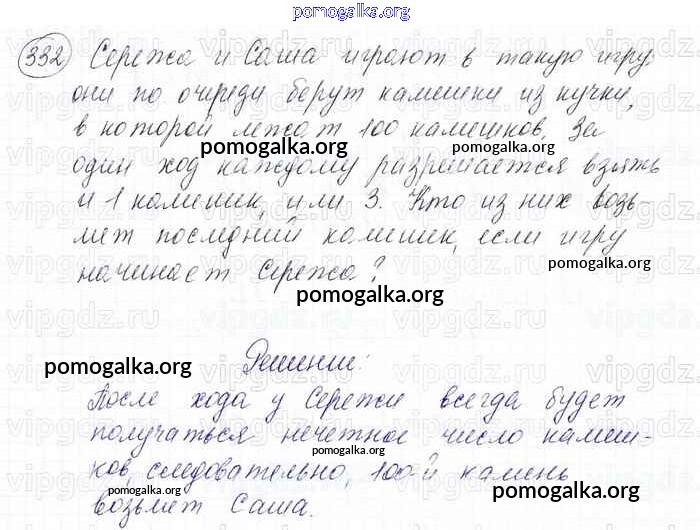 pomogalka.org
332 Сережа и Саша играют в такую игру:
они по очереди берут камешки из кучки,
в которой лежат 100 камешков. За
pomogalka.org pomogalka.org
один ход каждому разрешается взять
и 1 камешек, или 3. Кто из них возь-
мет последний камешек, если игру
начинает Сережа?
pomogalka.org
pomogalka.org
pomogalka.org
Решение:
pomogalka.org
После хода у Сережи всегда будет
получаться нечетное число камеш-
pomogalka.org
ков, следовательно, 100-й камень
pomogalka.org pomogalka.org
возьмет Саша.